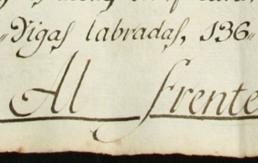 "Vigas labradas, 136"
Al frente